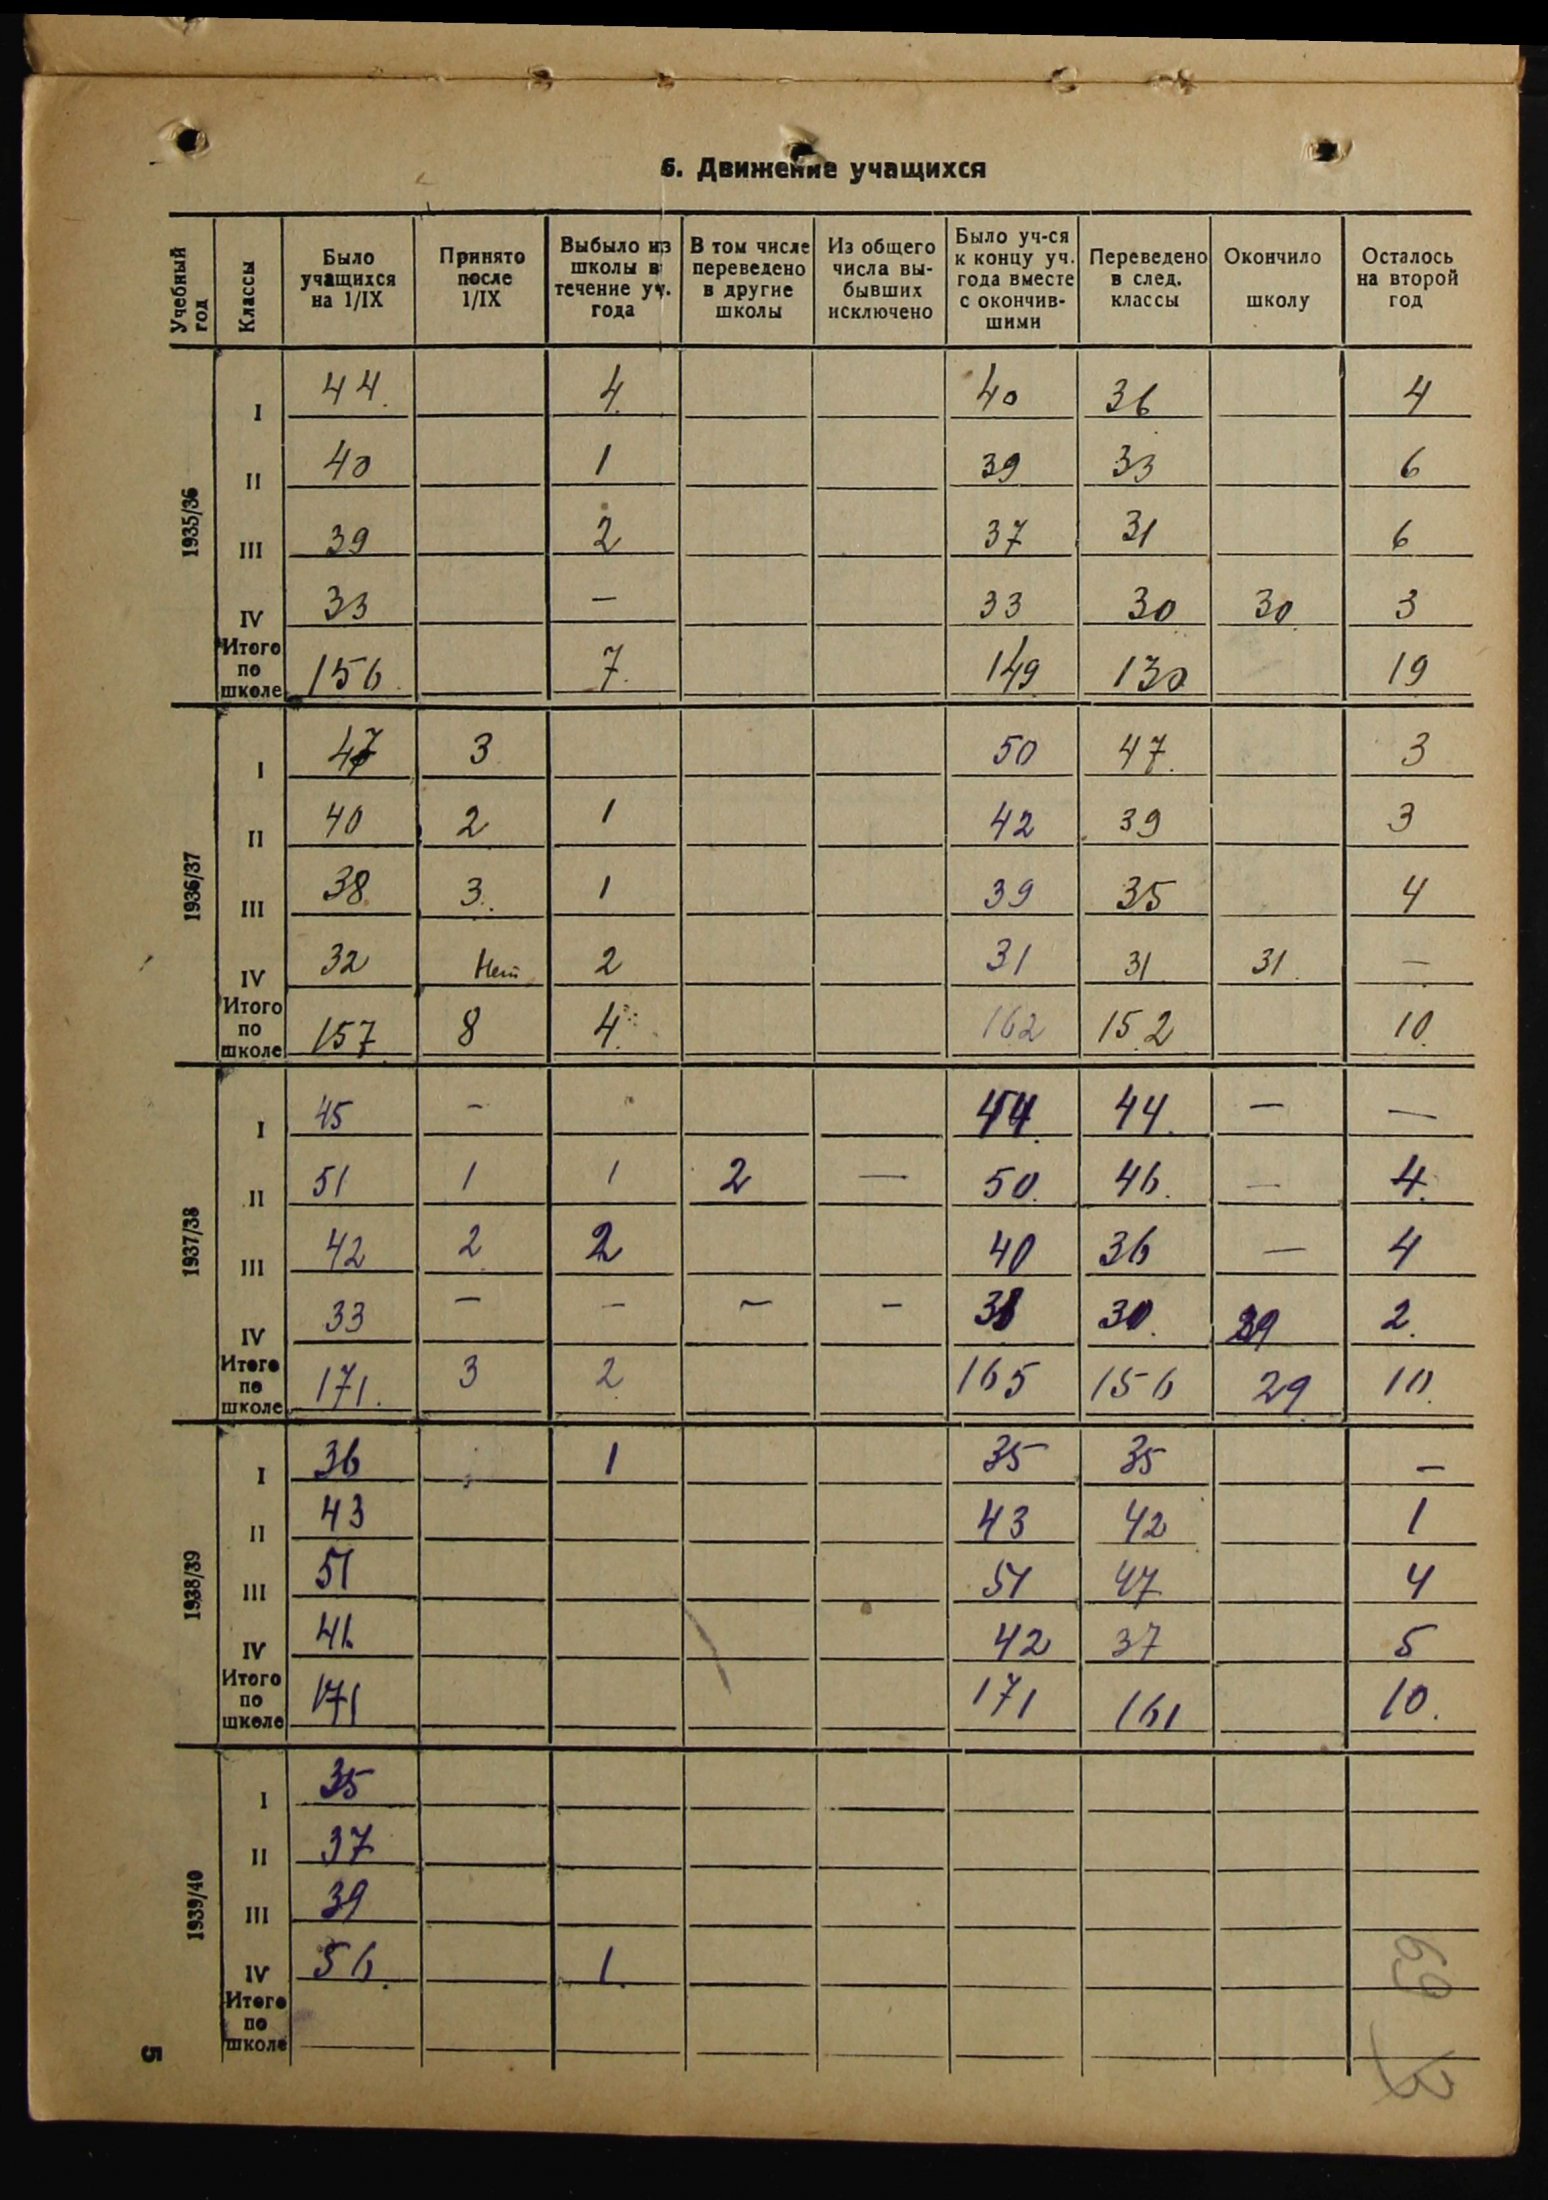 6. Движение учащихся
Учебный год | Классы | Было учащихся на 1/IX | Принято после 1/IX | Выбыло из школы в течение уч. года | В том числе переведено в другие школы | Из общего числа выбывших исключено | Было уч-ся к концу уч. года вместе с окончившими | Переведено в след. классы | Окончило школу | Осталось на второй год
1935/36
I 44 4 40 36 4
II 40 1 39 33 6
III 39 2 37 31 6
IV 33 — 33 30 30 3
Итого по школе 156 7 149 130 19
1936/37
I 47 3 50 47 3
II 40 2 1 42 39 3
III 38 3 1 39 35 4
IV 32 Нет 2 31 31 31 —
Итого по школе 157 8 4 162 152 10
1937/38
I 45 — 44 44 — —
II 51 1 1 2 — 50 46 — 4
III 42 2 2 40 36 — 4
IV 33 — — — — 30 29 2
Итого по школе 171 3 2 165 156 29 10
1938/39
I 36 1 35 35 —
II 43 43 42 1
III 51 51 47 4
IV 41 42 37 5
Итого по школе 171 171 161 10
1939/40
I 35
II 37
III 39
IV 56 1
Итого по школе
5